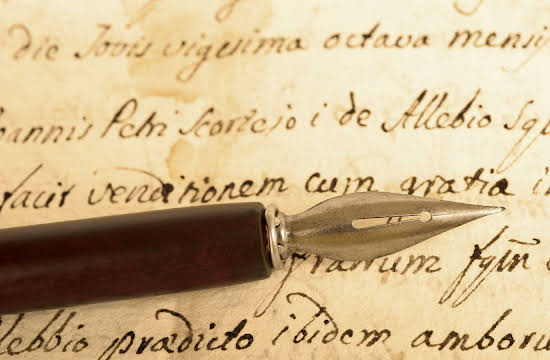 die Jovis vigesima octava mensi
oannis Petri Scortejo i de Allebio Sq
facit venditionem cum gratia
llebbio prædicto ibidem amboru